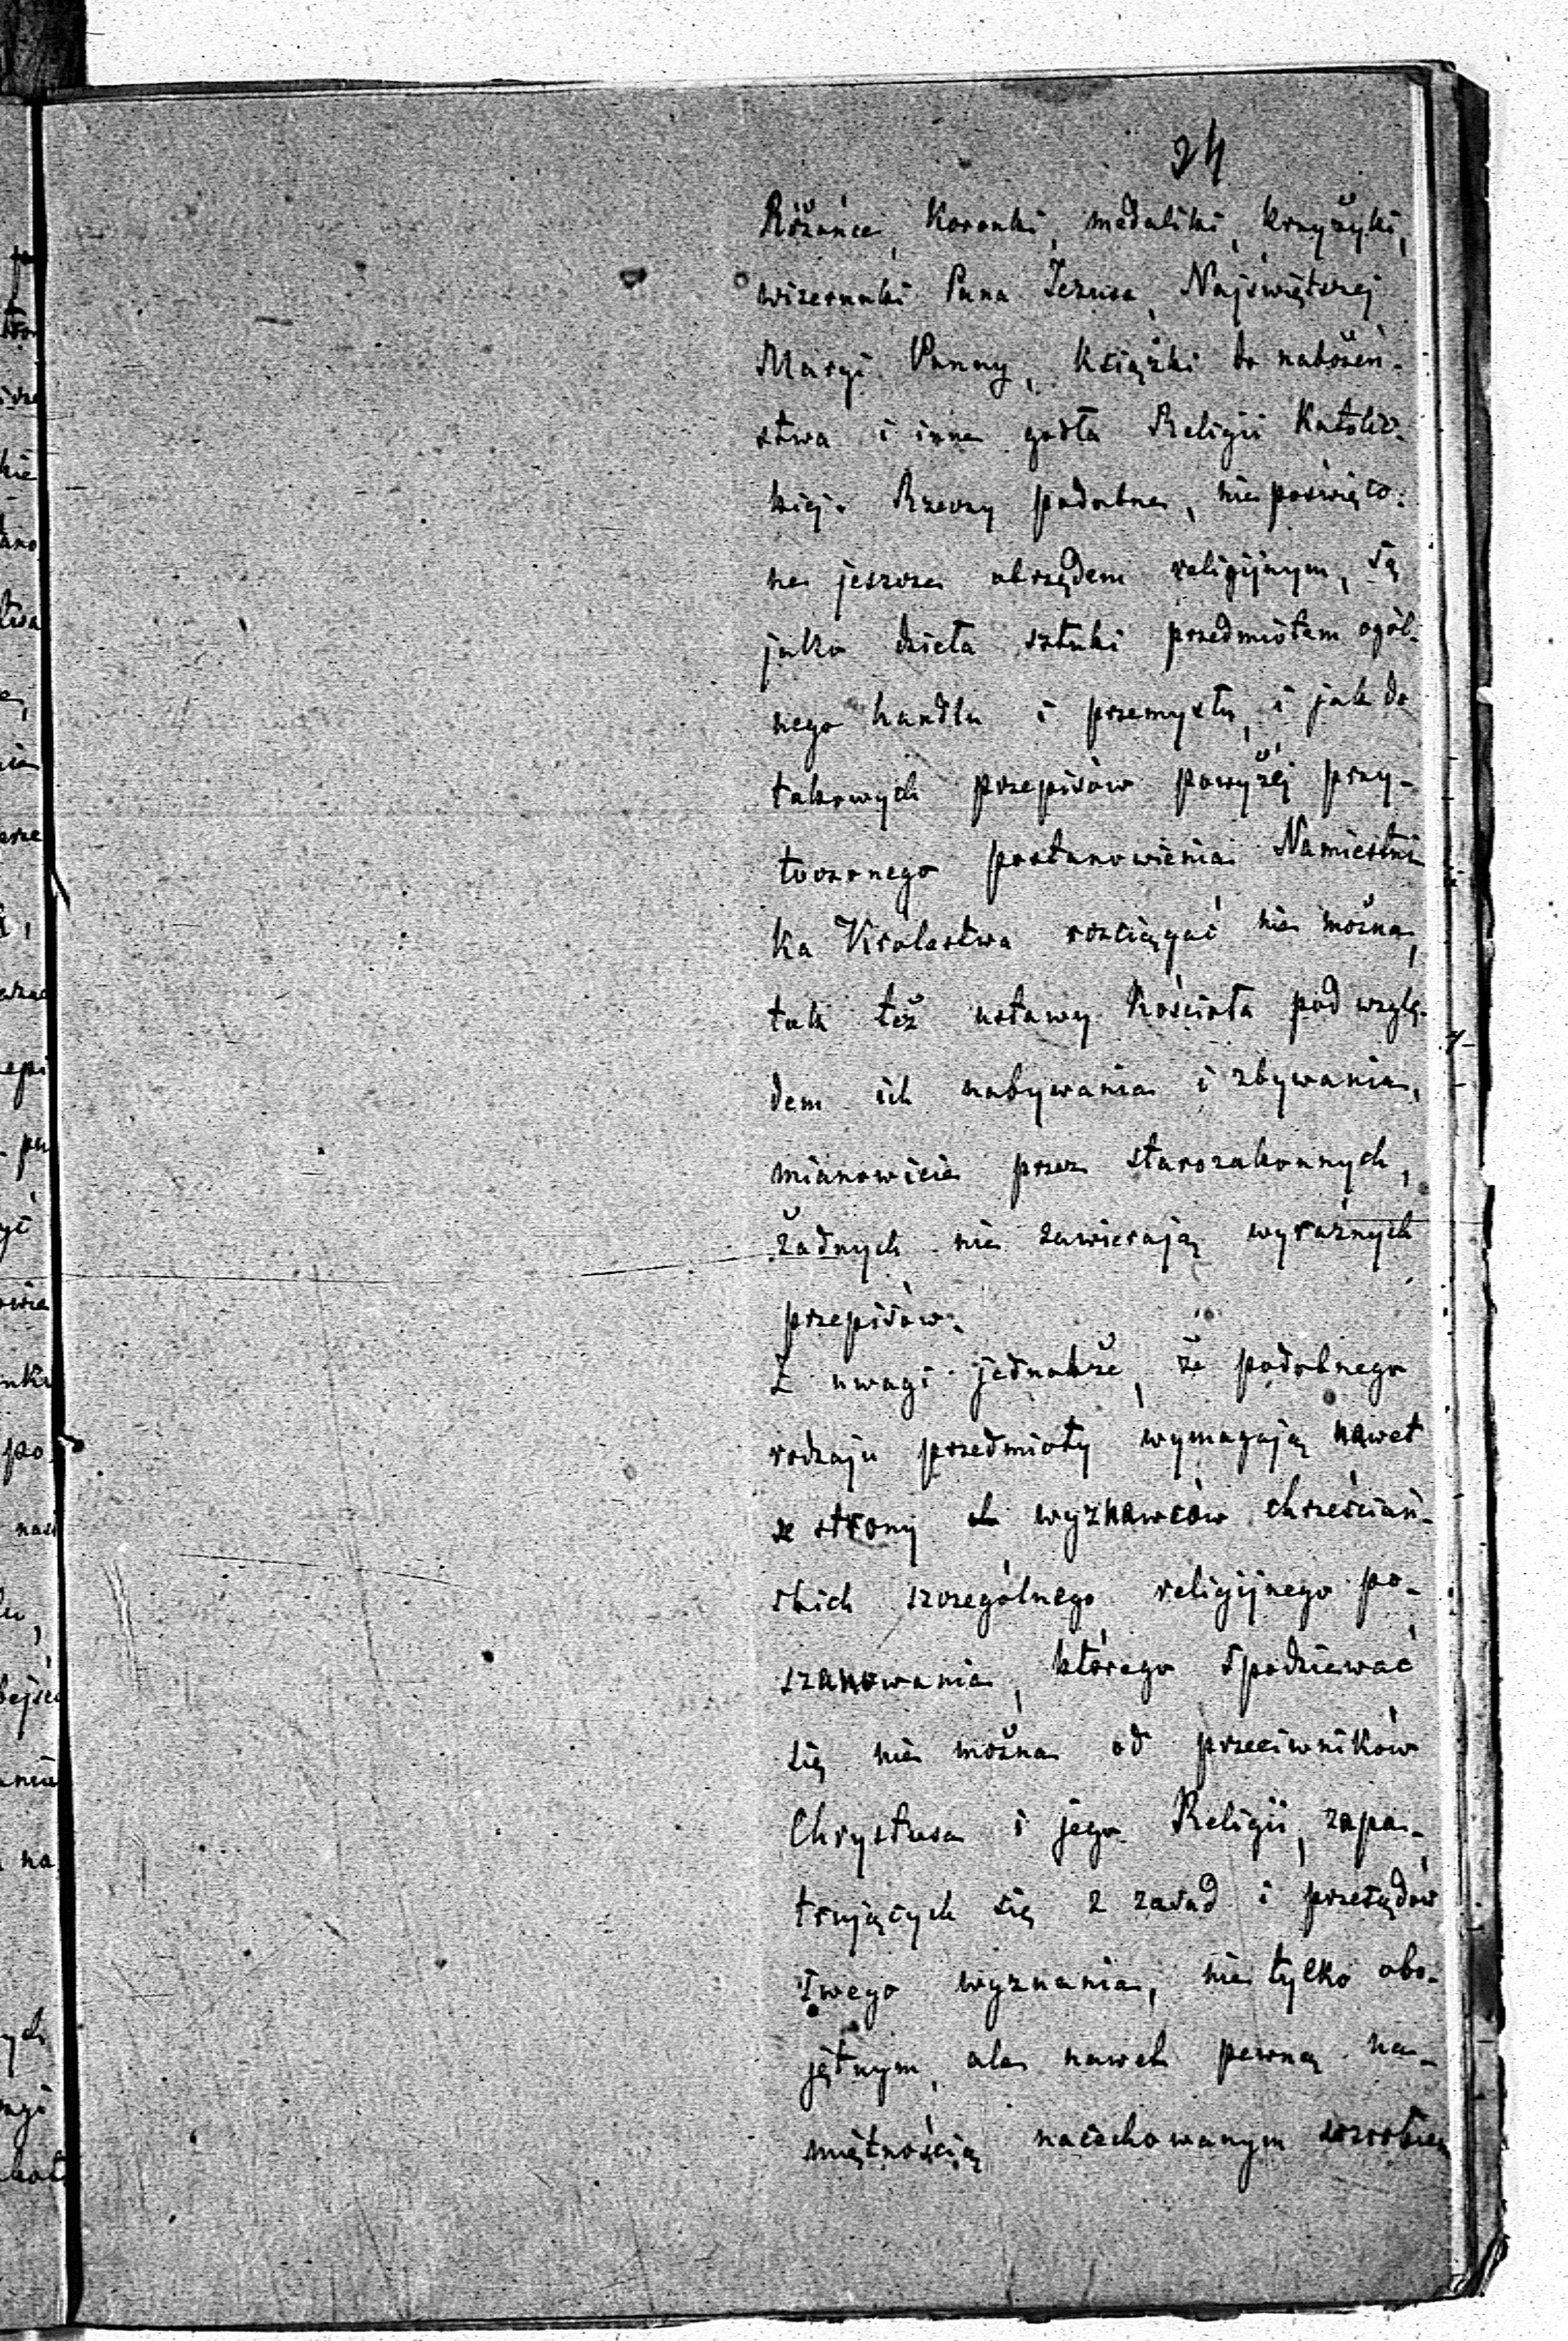 24
Różańce, Koronki, medaliki, krzyżyki,
wizerunki Pana Jezusa, Najświętszej
Maryi Panny, Książki do nabożeń-
stwa i inne godła Religii Katolic-
kiej. Rzeczy podobne, niepoświęco-
ne jeszcze obrzędem religijnym, są
jako dzieła sztuki przedmiotem ogól-
nego handlu i przemysłu, i jak do
takowych przepisów powyżej przy-
toczonego postanowienia Namiestni
ka Królestwa rozciągać nie można,
tak też ustawy Kościoła pod wzglę-
dem ich nabywania i zbywania,
mianowicie przez starozakonnych,
żadnych nie zawierają wyraźnych
przepisów.
Z uwagi jednakże, że podobnego
rodzaju przedmioty wymagają nawet
ze strony wyznawców chrześciań-
skich szczególnego religijnego po-
szanowania, którego spodziewać
się nie można od przeciwników
Chrystusa i jego Religii, zapa-
trujących się z zasad i przesądów
swego wyznania, nie tylko obo-
jętnym, ale nawet pewną na-
miętnością nacechowanym
pu
nia
na